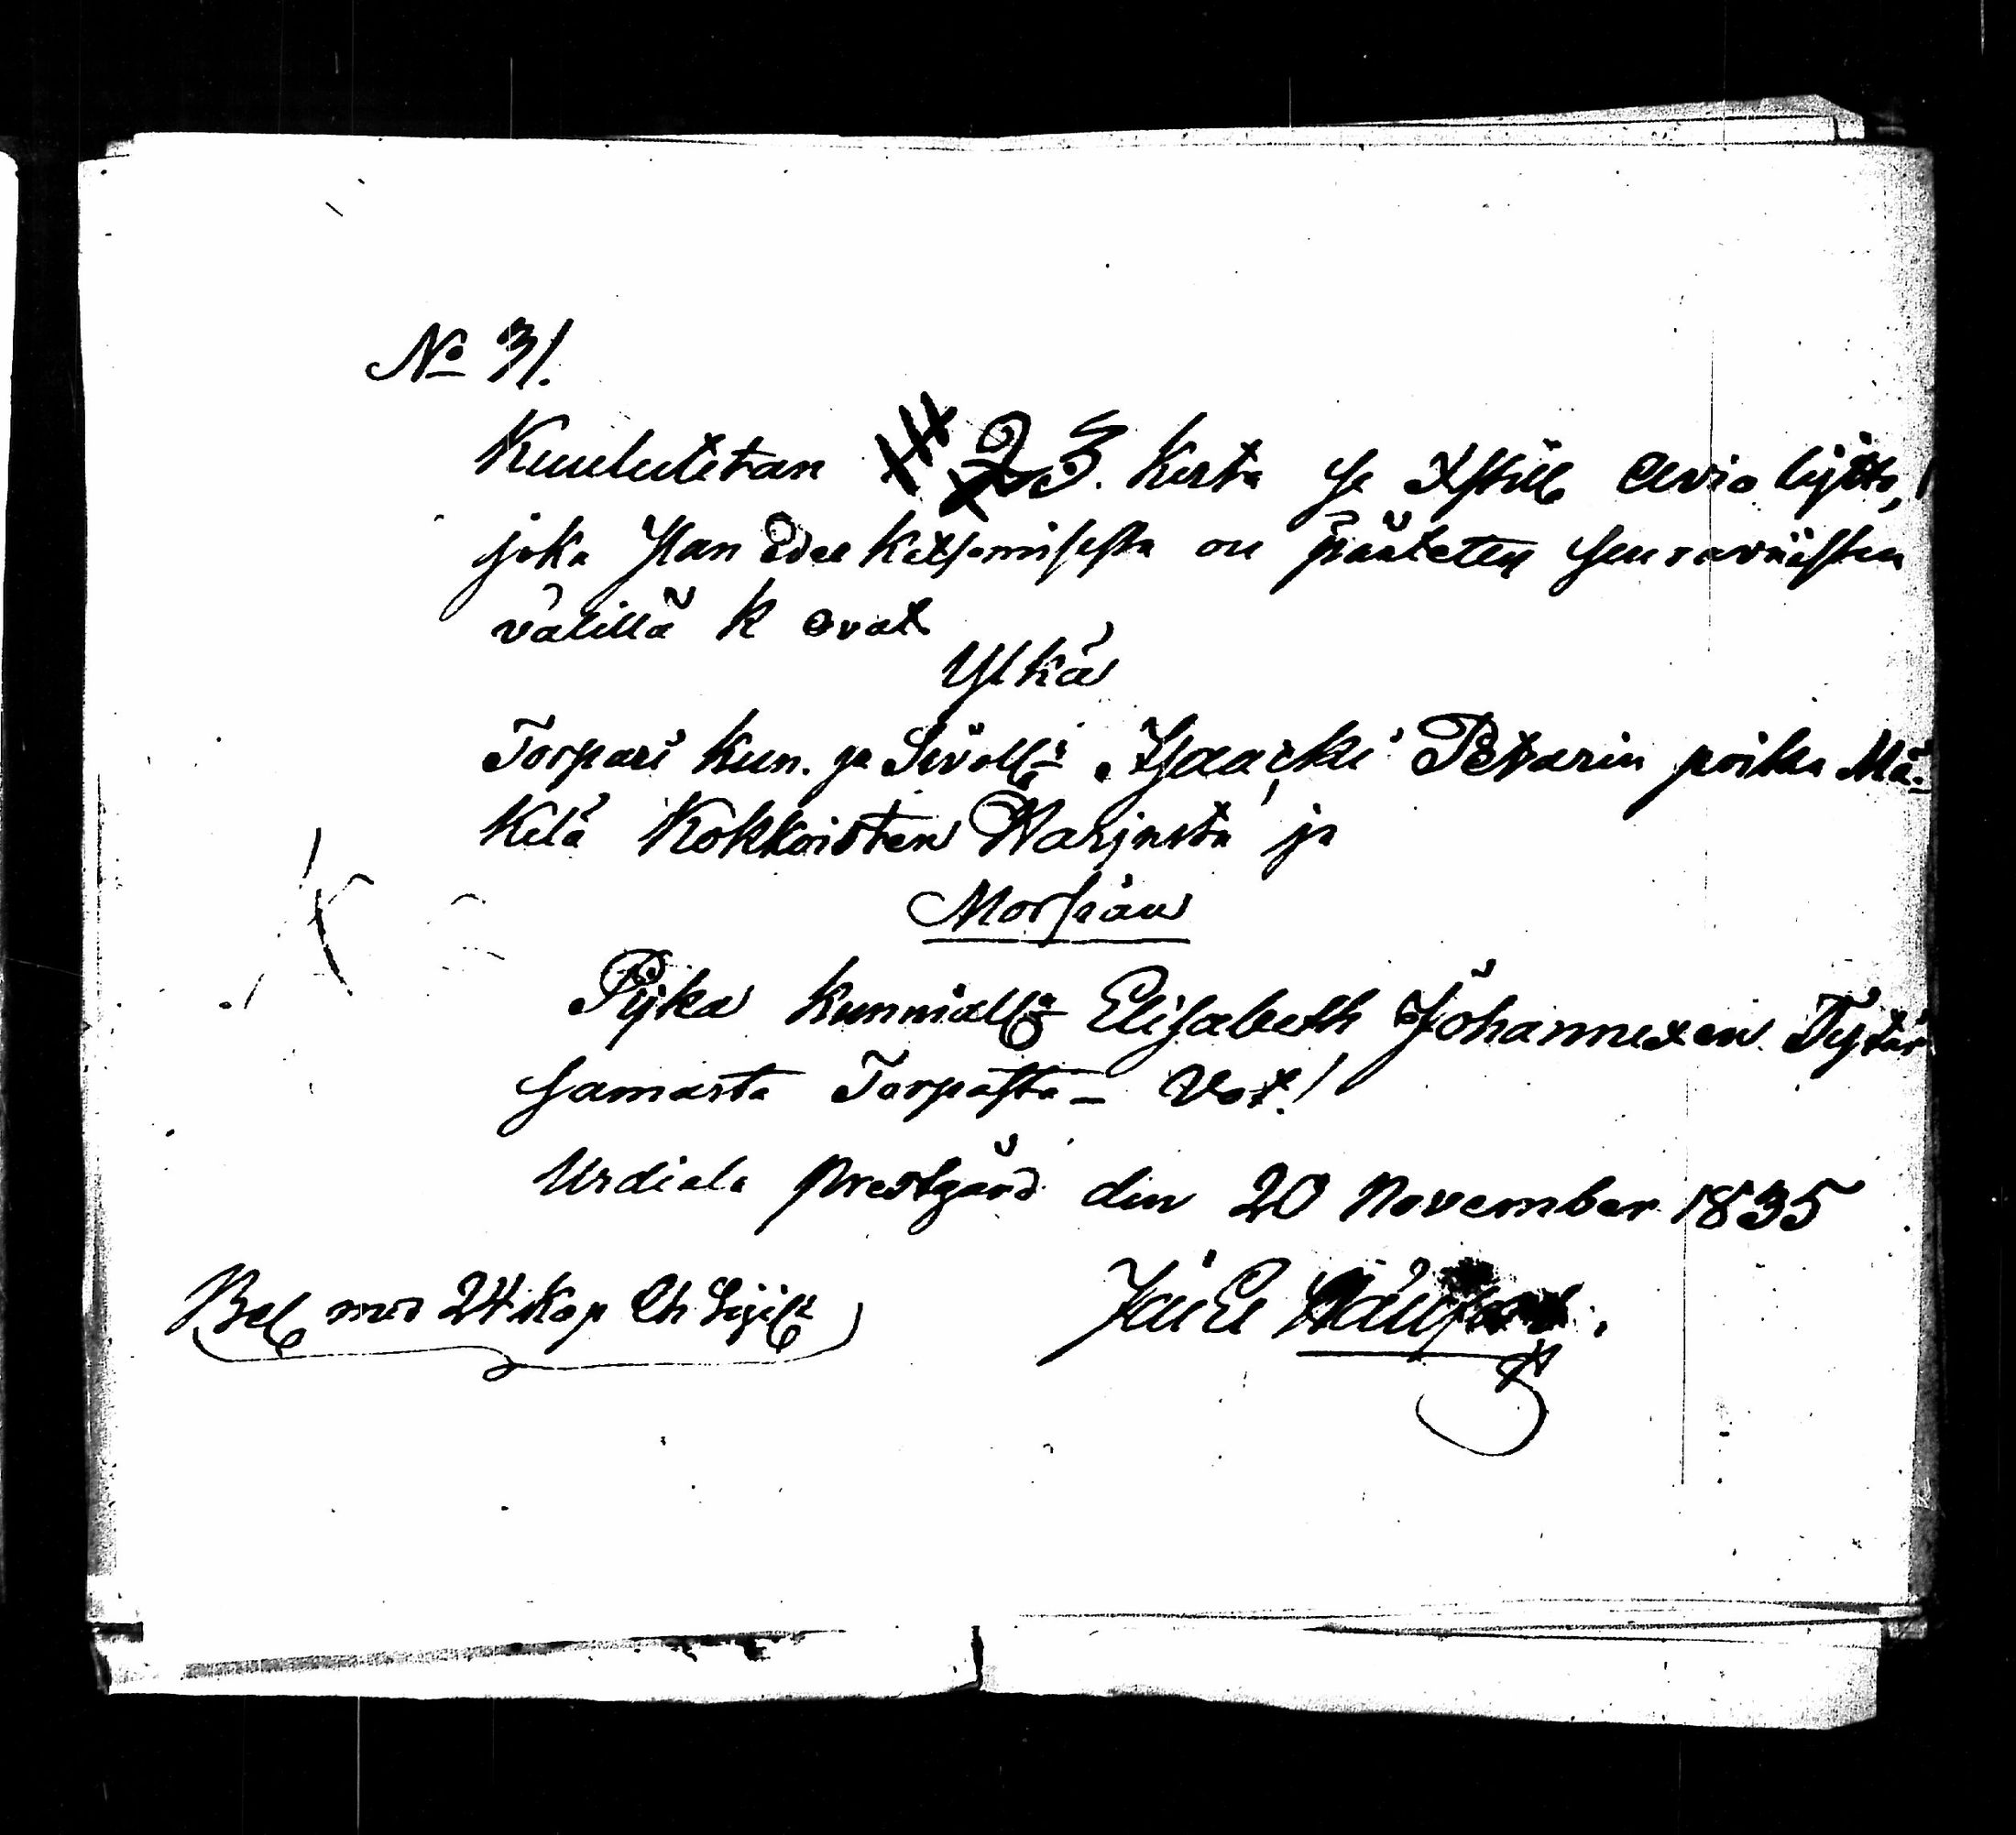 No 31.
Kuulutetan 2 3. Kerta se Xstill Avio liitto,
joka Jlan edes katsomisesta on päätetty seuravaisten
välillä k ovat
Ylkä
Torpari Kun. ja Sivoll: Isaacki Petarin poika Mä-
Kelä Kokkoisten Harjusta ja
Morsian
Pijka kunniall: Elisabeth Johannexen Tytär
samasta Torpasta - Vot!
Urdiala Prestgård den 20 November 1835
Bet med 24 Kop